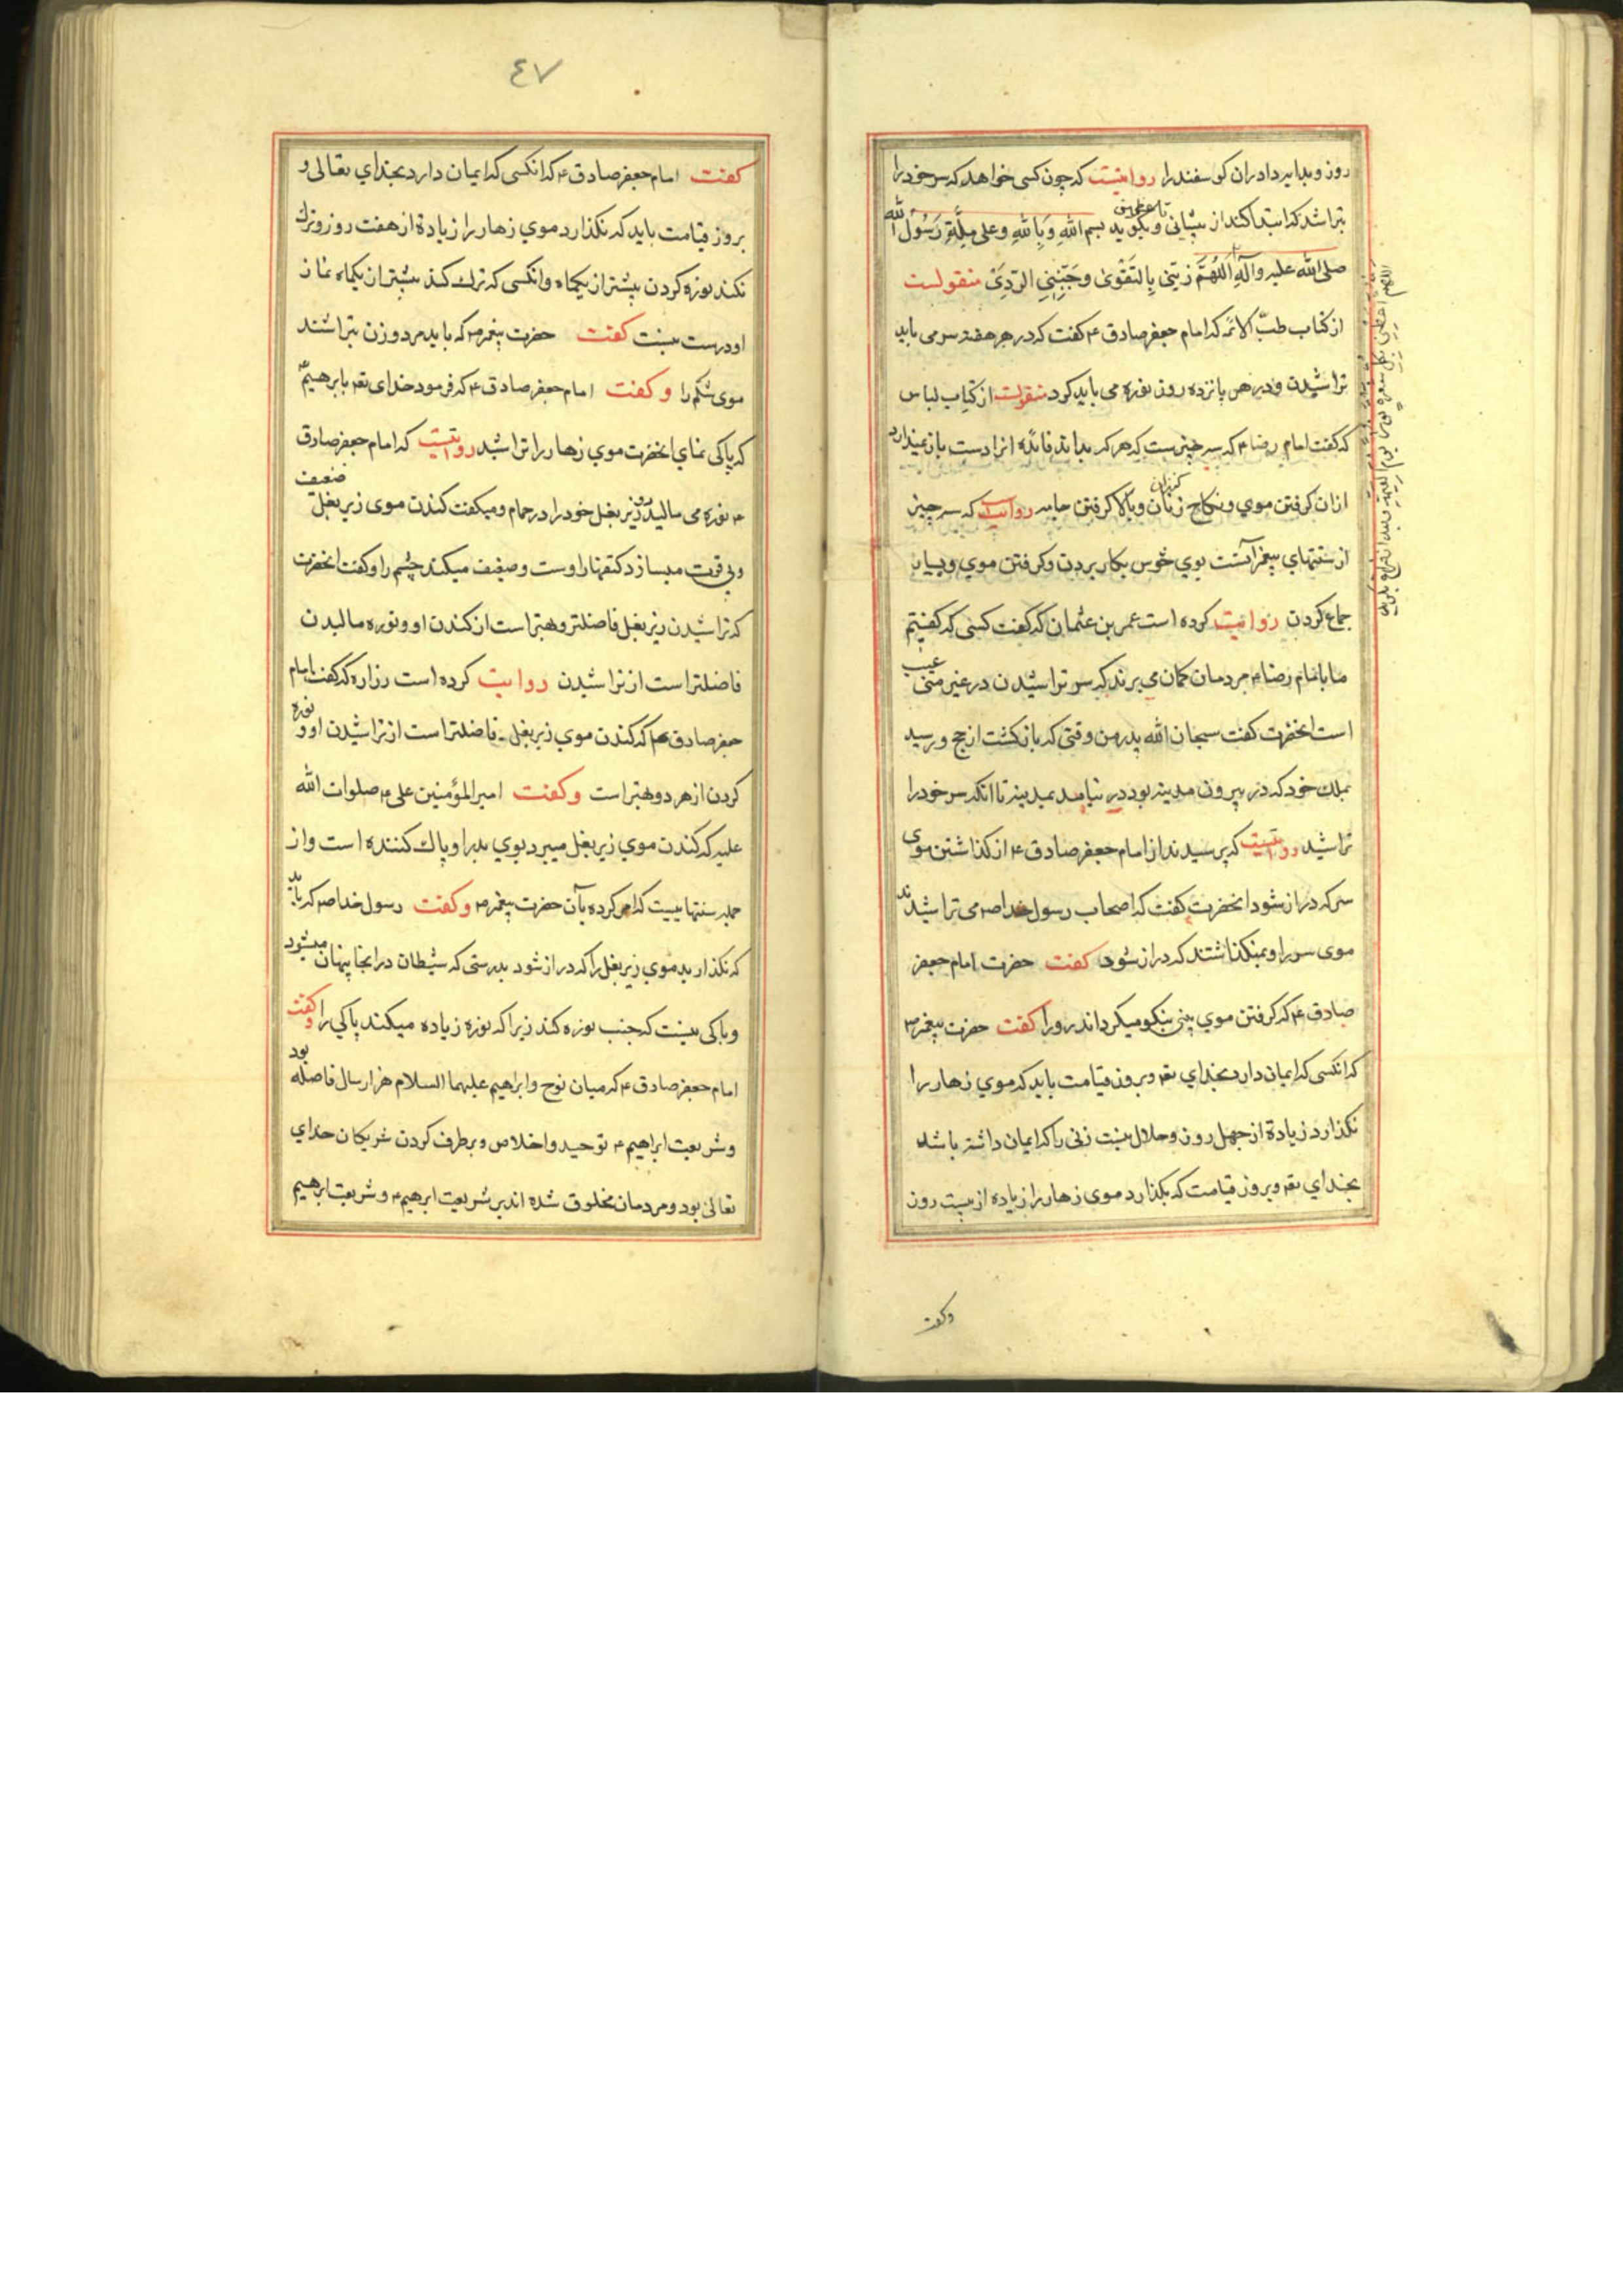 روز و بداید دادران کوسفند را روایتست که چون کسی خواهد که سر خود را
بتراشد که ابتدا کند از پیشانی و بکوید بسم الله وَبِاللهِ وعلی مِلَّةِ رَسُولِ الله
صلی الله علیه وآلهِ اَللّهُمَّ زَیِّنّی بِالتَقْوٰی وجَنِّبْنِی الرَّدِیٰ منقولست
از کتاب طبّ الائمّه که امام جعفر صادق ع کفت که در هر هفته سر می باید
تراشیدن و در هر پانزده روز نوره می باید کرد منقولست از کتاب لباس
که کفت امام رضا ع که سه چیزست که هر که بداند فائده انرا دست باز نمیدارد
ازان کرفتن موی و نکاح کنیزان و بالا کرفتن جامه روایتست که سه چیز
از سنتهای پیغمبرانست بوی خوش بکار بردن و کرفتن موی و بسیار
جماع کردن روایت کرده است عمر بن عثمان که کفت کسی که کفتیم
ما بامام رضا ع مردمان کمان می برند که سر تراشیدن در غیر منی عیب
است انحضرت کفت سبحان الله پدر من وقتی که باز کشت از حج و رسید
بملک خود که در بیرون مدینه بود در نیامد بمدینه تا انکه سر خود را
تراشید روایتست که پرسیدند از امام جعفر صادق ع از کذاشتن موی
سر که دراز شود انحضرت کفت که اصحاب رسول خدا ص می تراشیدند
موی سر را و نمیکذاشتند که دراز شود کفت حضرت امام جعفر
صادق ع که کرفتن موی بینی نیکو میکرداند رو را کفت حضرت پیغمبر ص
که انکسی که ایمان دارد بخدای تع و بروز قیامت باید که موی زهار را
نکذارد زیادة از چهل روز و حلال نیست زنی را که ایمان داشته باشد
بخدای تع و بروز قیامت که بکذارد موی زهار را زیاده از بیست روز
وکفت
٤٧
کفت امام جعفر صادق ع که انکسی که ایمان دارد بخدای تعالی و
بروز قیامت باید که نکذارد موی زهار را زیادة از هفت روز و ترك
نکند نوره کردن بیشتر از یکماه و انکسی که ترك کند بیشتر از یکماه نماز
او درست نیست کفت حضرت پیغمبر ص که باید مرد و زن بتراشند
موی شکم را و کفت امام جعفر صادق ع که فرمود خدای تع بابرهیم ع
که پاکی نمای انحضرت موی زهار را تراشید روایتست که امام جعفر صادق
ع نوره می مالید زیر بغل خود را در حمام و میکفت کندن موی زیر بغل ضعف
وبی قوت میسازد کتفها را وسست و ضعیف میکند چشم را وکفت انحضرت
که تراشیدن زیر بغل فاضلتر وبهتر است از کندن او ونوره مالیدن
فاضلتر است از تراشیدن روایت کرده است زراره که کفت امام
جعفر صادق ع که کندن موی زیر بغل فاضلتر است از تراشیدن او و نوره
کردن از هر دو بهتر است وکفت امیر المؤمنین علی ع صلوات الله
علیه که کندن موی زیر بغل میبرد بوی بد را و پاك کننده است واز
جمله سنتهاییست که امر کرده بآن حضرت پیغمبر ص وکفت رسول خدا ص که باید
که نکذارید موی زیر بغل را که دراز شود بدرستی که شیطان در انجا پنهان میشود
وباکی نیست که جنب نوره کند زیرا که نوره زیاده میکند پاکی را وکفت
امام جعفر صادق ع که میان نوح وابراهیم علیهما السلام هزار سال فاصله بود
وشریعت ابراهیم ع توحید واخلاص وبرطرف کردن شریکان خدای
تعالی بود ومردمان مخلوق شده اند بر شریعت ابرهیم ع وشریعت ابرهیم